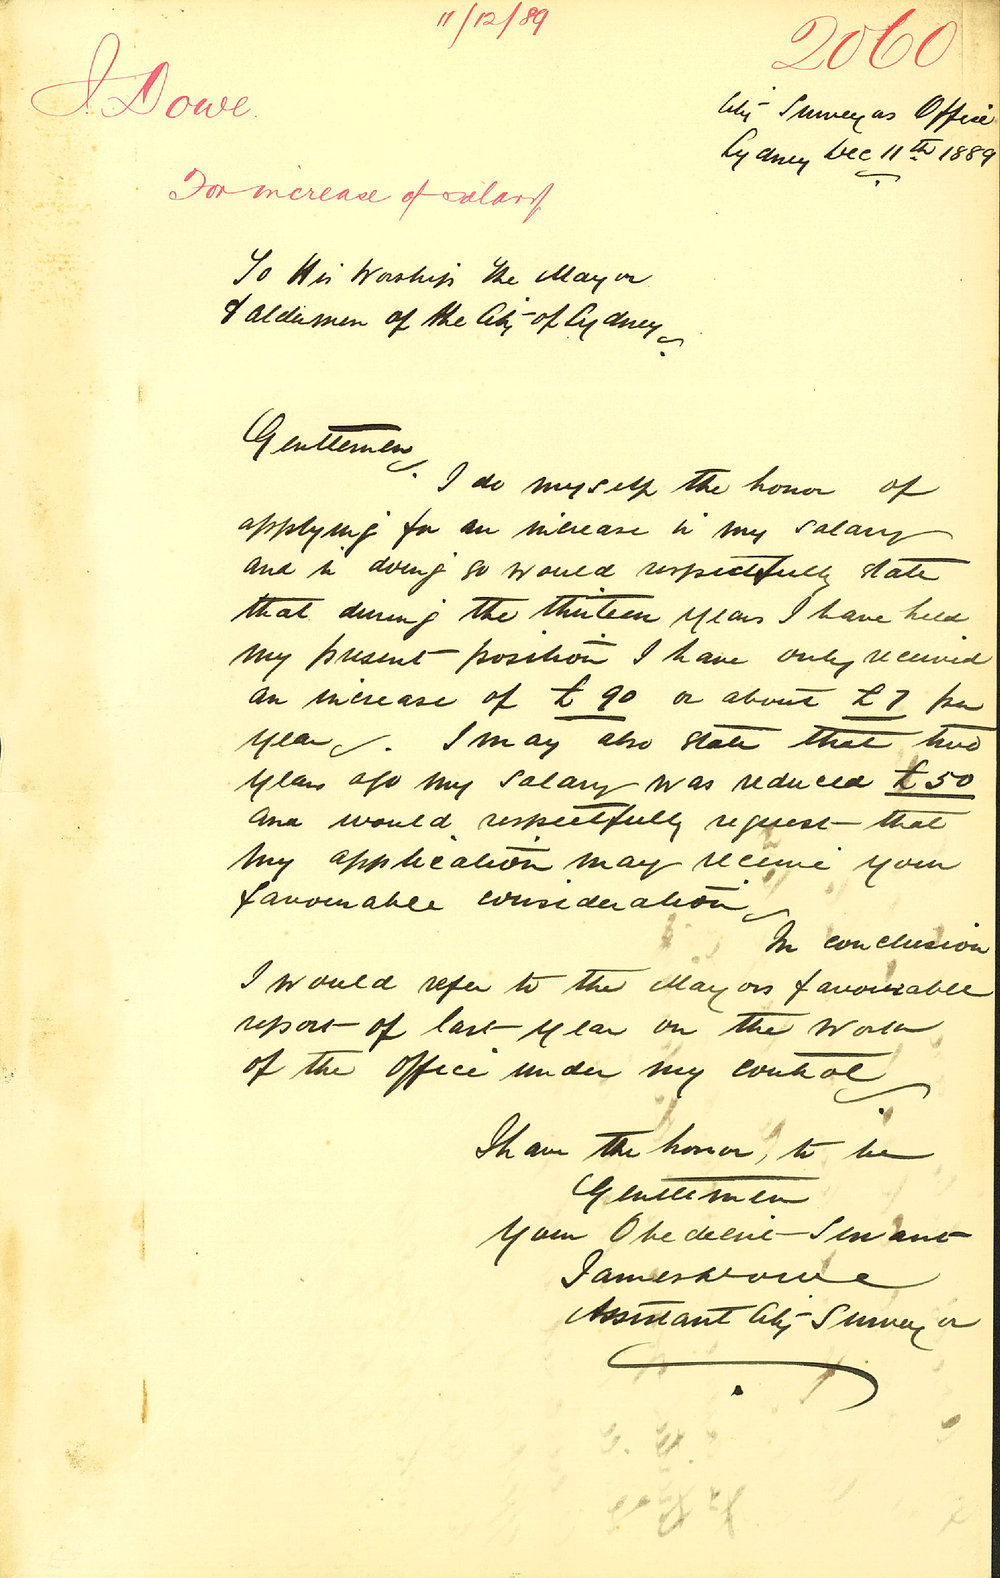 11/12/89
2060
J. Dowe.
City Surveyors Office
Sydney Dec 11th 1889
For increase of salary
To His Worship the Mayor
& Aldermen of the City of Sydney.
Gentlemen.
I do myself the honor of
applying for an increase in my salary
and in doing so would respectfully state
that during the thirteen years I have held
my present position I have only received
an increase of £90 or about £7 per
year. I may also state that two
years ago my salary was reduced £50
and would respectfully request that
my application may receive your
favourable consideration
In conclusion
I would refer to the Mayors favourable
report of last year on the work
of the office under my control.
I have the honor, to be
Gentlemen
Your Obedient Servant
James Dowe
Assistant City Surveyor